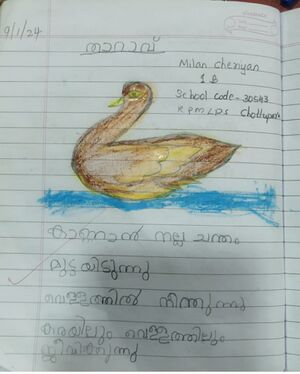 9/1/24
താറാവ്
Milan Cheriyan
1 B
School code - 30543
K P M L P S Chottupara
കാണാൻ നല്ല ചന്തം
മുട്ടയിടുന്നു
വെള്ളത്തിൽ നീന്തുന്നു
കരയിലും വെള്ളത്തിലും
ജീവിക്കുന്നു